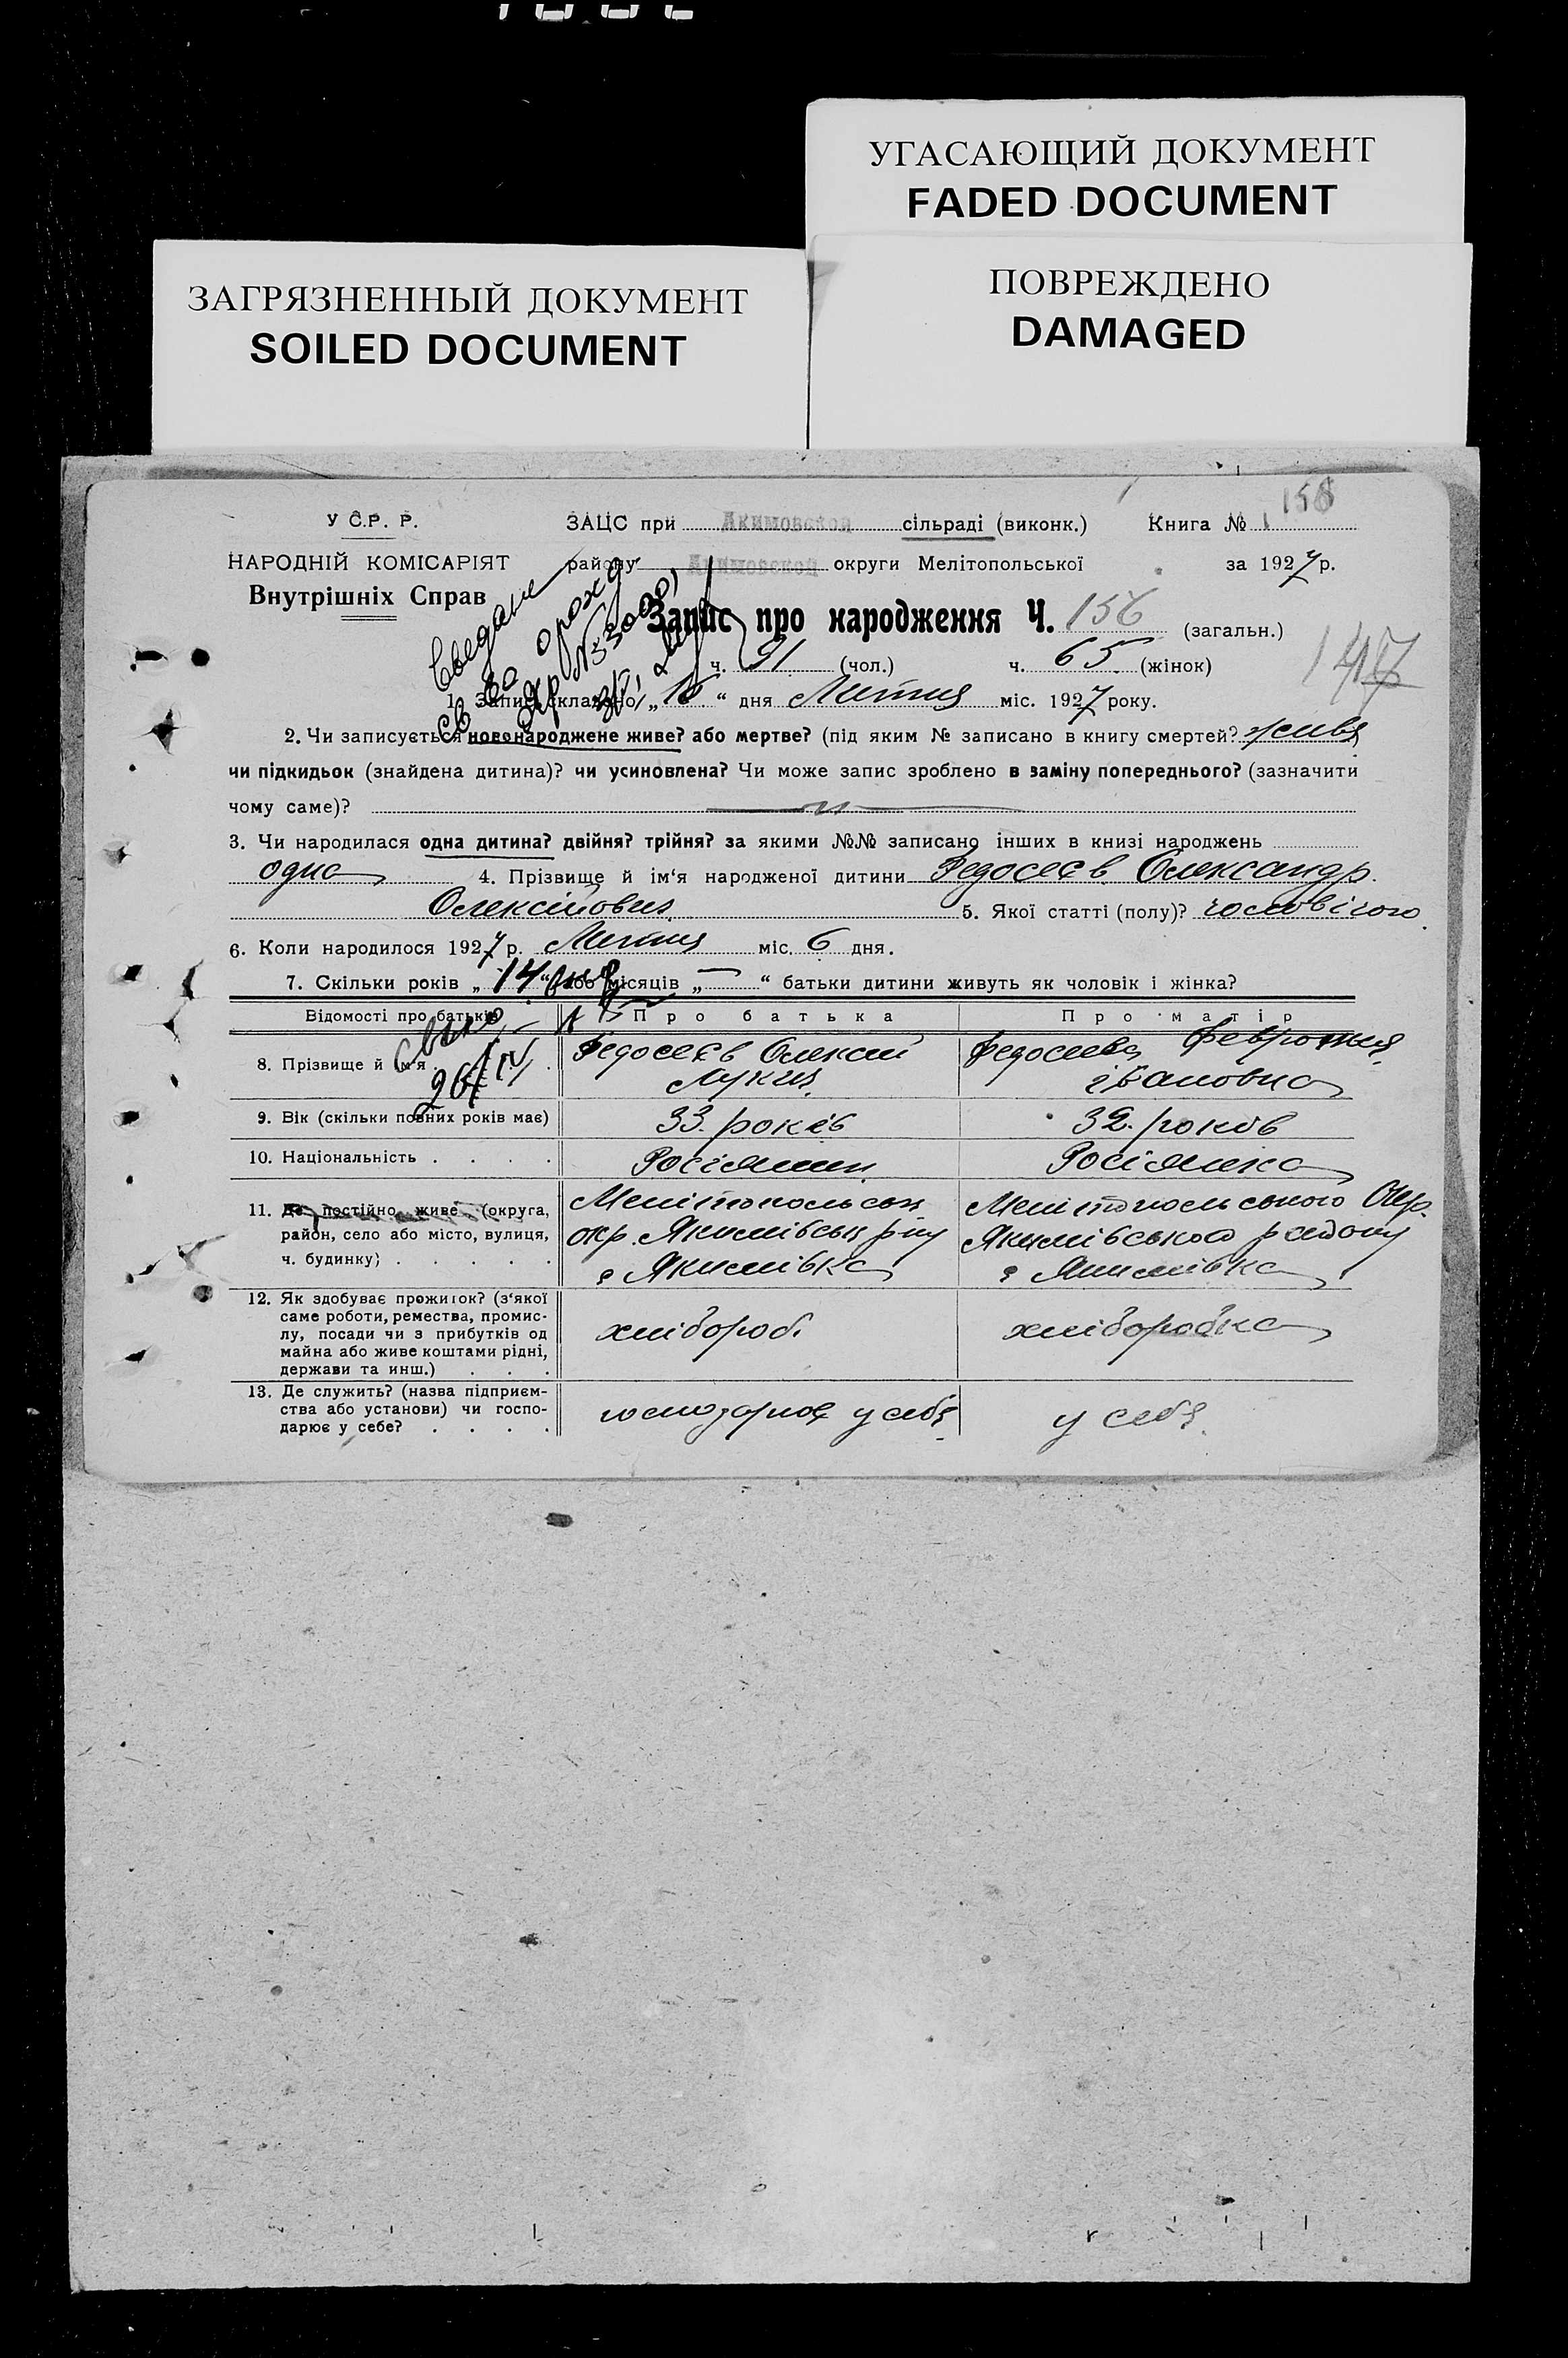 УГАСАЮЩИЙ ДОКУМЕНТ
FADED DOCUMENT
ЗАГРЯЗНЕННЫЙ ДОКУМЕНТ
SOILED DOCUMENT
ПОВРЕЖДЕНО
DAMAGED
158
У С.Р. Р.
ЗАЦС при Акимовской сільраді (виконк.) Книга №
НАРОДНІЙ КОМІСАРІЯТ
району Акимовской округи Мелітопольської за 1927 р.
Внутрішніх Справ
Запис про народження Ч. 156 (загальн.)
147
ч. 91 (чол.) ч. 65 (жінок)
1. Запис складено „16“ дня Лютня міс. 1927 року.
2. Чи записується новонароджене живе? або мертве? (під яким № записано в книгу смертей? живе
чи підкидьок (знайдена дитина)? чи усиновлена? Чи може запис зроблено в заміну попереднього? (зазначити
чому саме)?
3. Чи народилася одна дитина? двійня? трійня? за якими №№ записано інших в книзі народжень
одна 4. Прізвище й ім'я народженої дитини Федосеєв Олександр
Олексійович 5. Якої статті (полу)? чоловічого
6. Коли народилося 1927 р. Лютня міс. 6 дня.
7. Скільки років „14“ або місяців „—“ батьки дитини живуть як чоловік і жінка?
Відомості про батьків Про батька Про матір
8. Прізвище й ім'я . Федосеєв Олексій Федосеева Феврония
Лукич івановна
9. Вік (скільки повних років має) 33 років 32 років
10. Національність . . . . Росіянин Росіянка
11. Де постійно живе (округа, Мелітопольськ Мелітопольського Окр.
район, село або місто, вулиця, окр. Якимівськ р-ну Якимівського району
ч. будинку) . . . . . с Якимівка с Якимівка
12. Як здобуває прожиток? (з'якої
саме роботи, ремества, промис-
лу, посади чи з прибутків од хлібороб хліборобка
майна або живе коштами рідні,
держави та инш.) . . .
13. Де служить? (назва підприєм-
ства або установи) чи госпо- господарює у себе у себе
дарює у себе? . . . .